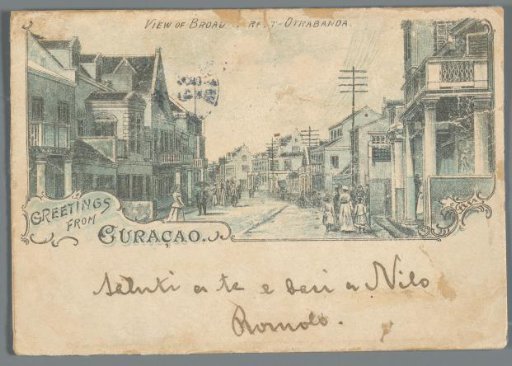 VIEW OF BROAD STREET-OTRABANDA.
GREETINGS
FROM
CURAÇAO.
Saluti a te e baci a Nilo
Romolo.